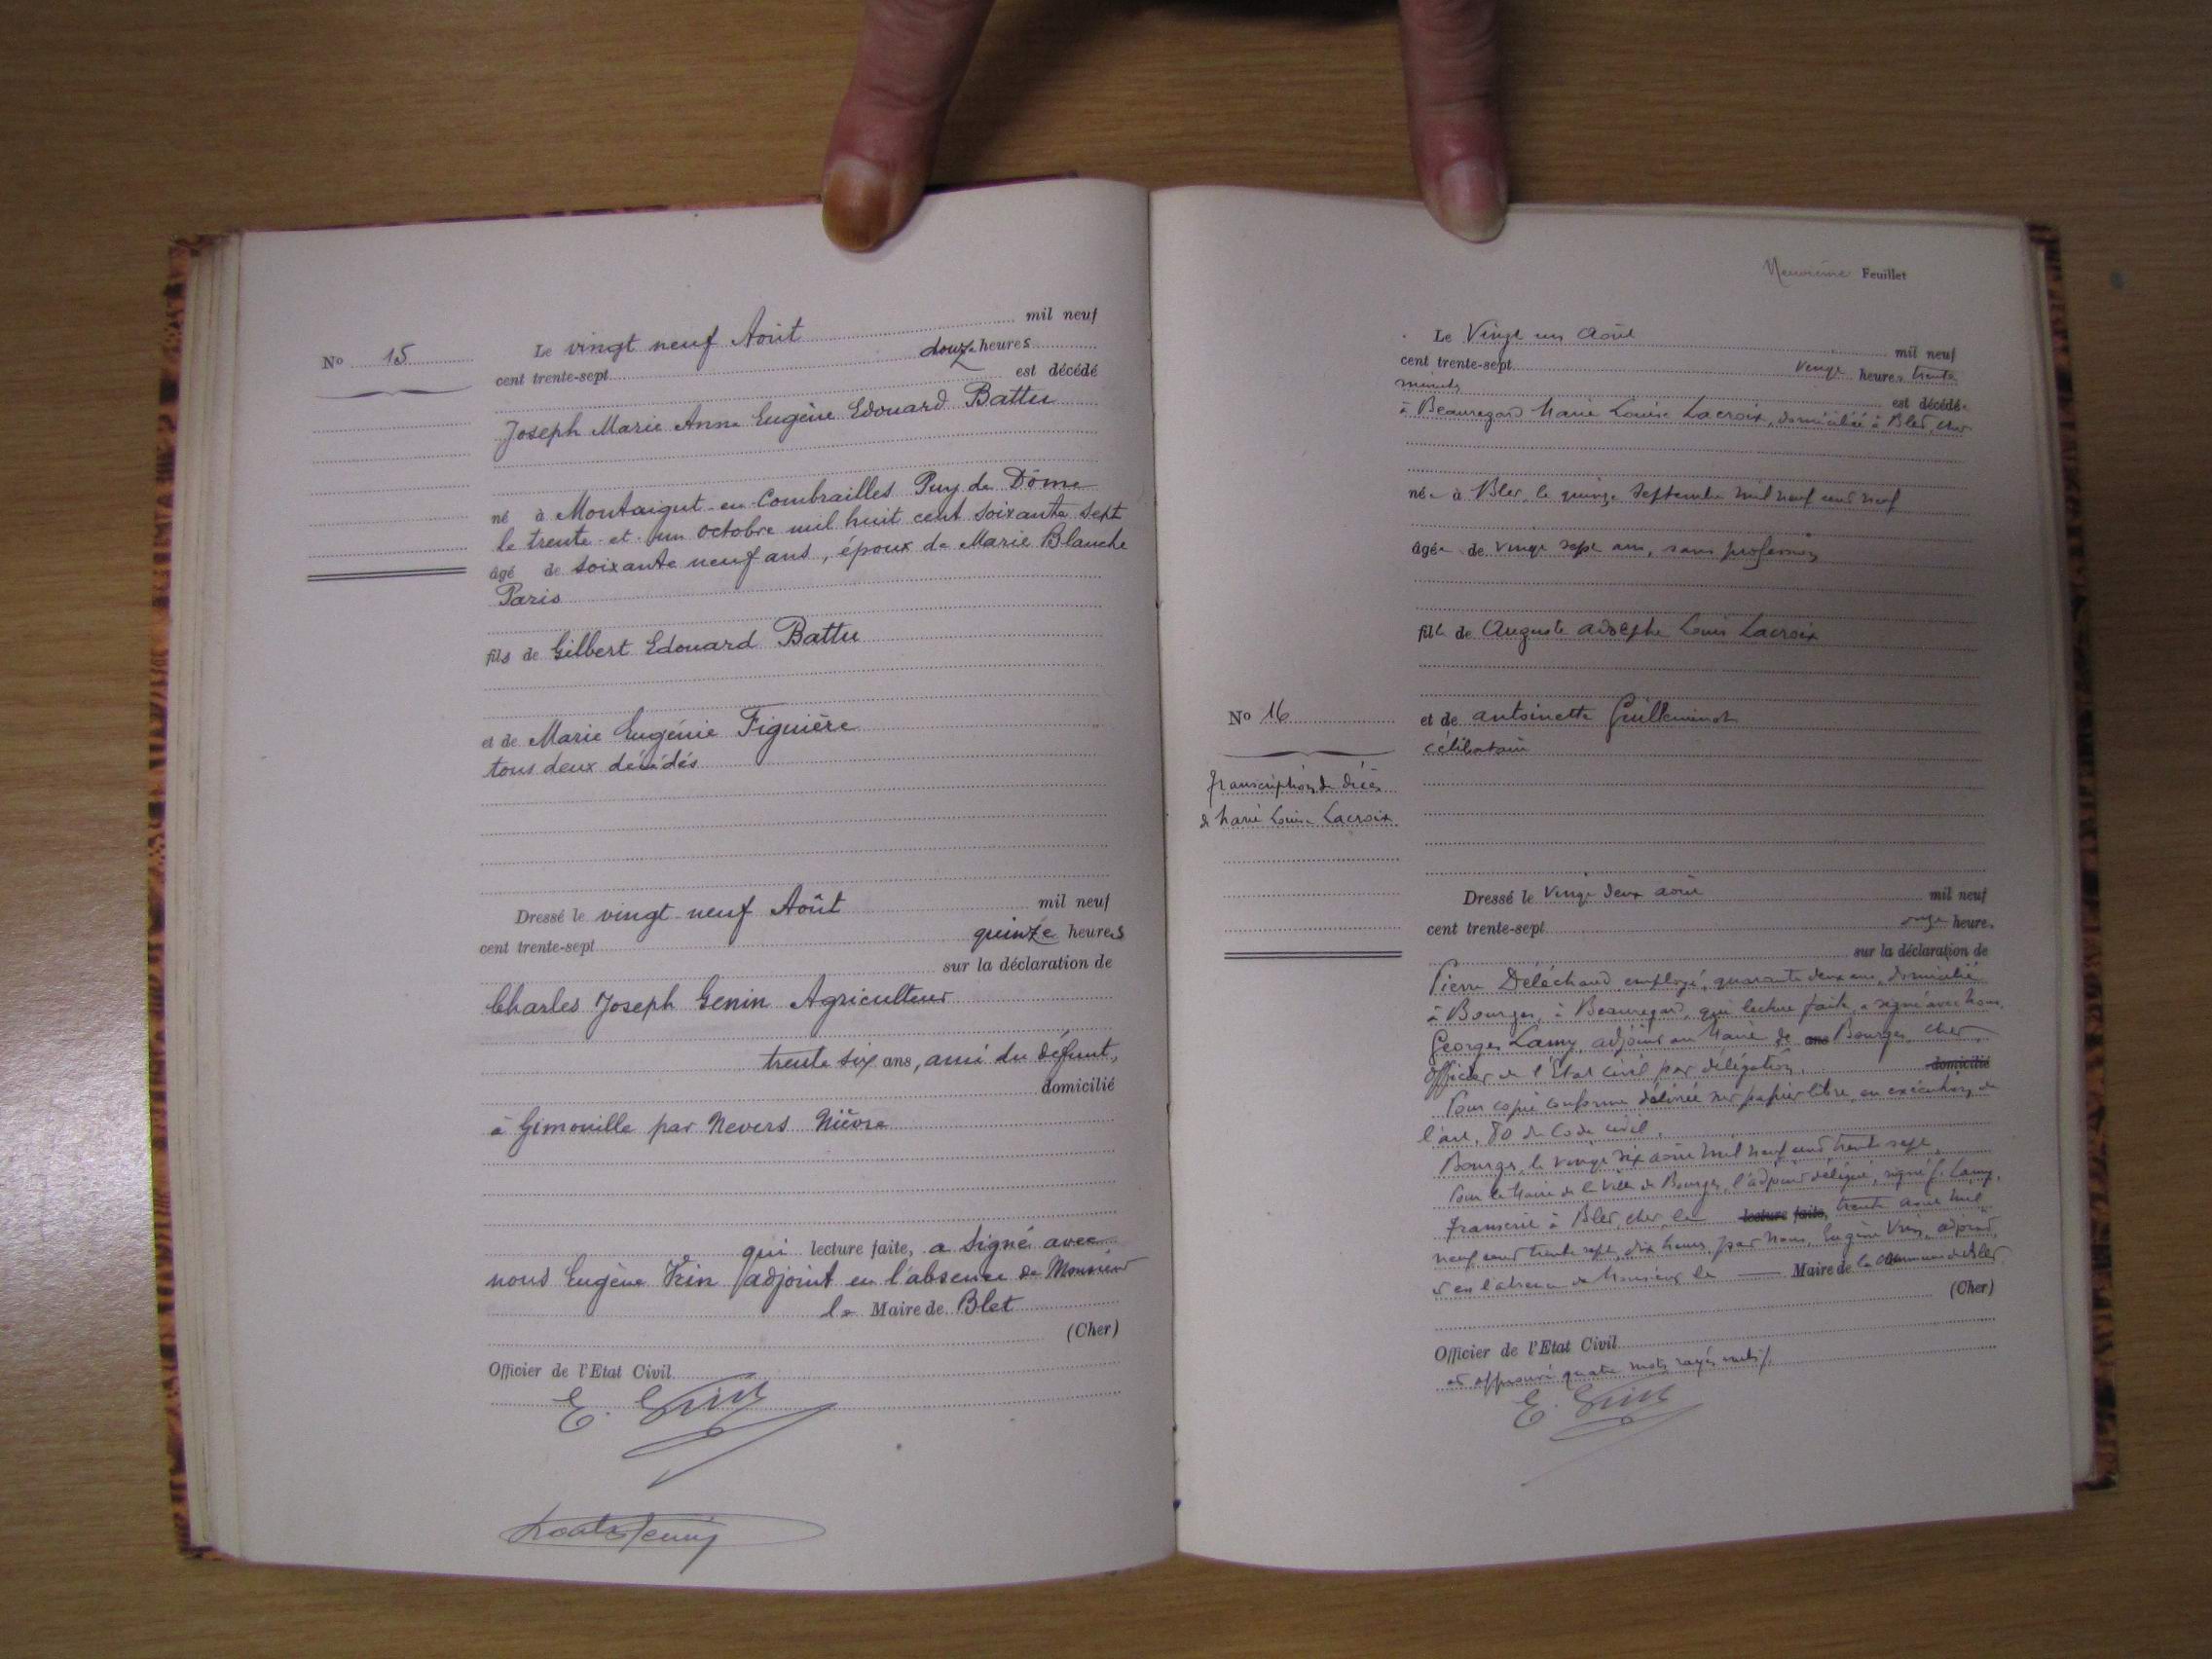 No 15
Le vingt neuf Août mil neuf
cent trente-sept douze heures
est décédé
Joseph Marie Anne Eugène Edouard Battu
né à Montaigut-en-Combrailles Puy de Dôme
le trente-et-un octobre mil huit cent soixante sept
âgé de soixante neuf ans, époux de Marie Blanche
Paris
fils de Gilbert Edouard Battu
et de Marie Eugénie Figuière
tous deux décédés
Dressé le vingt-neuf Août mil neuf
cent trente-sept quinze heures
sur la déclaration de
Charles Joseph Genin Agriculteur
trente six ans, ami du défunt,
domicilié
à Gimouille par Nevers Nièvre
qui lecture faite, a signé avec
nous Eugène Vrin adjoint en l'absence de Monsieur
le Maire de Blet
(Cher)
Officier de l'Etat Civil
E. Vrin
Neuvième Feuillet
Le Vingt un août mil neuf
cent trente-sept vingt heures trente
minutes est décédée
à Beauregard Marie Louise Lacroix, domiciliée à Blet, Cher
née à Blet, le quinze septembre mil neuf cent neuf
âgée de vingt sept ans, sans profession
fille de Auguste Adolphe Louis Lacroix
No 16
et de Antoinette Guilleminot
célibataire
Transcription de décès
de Marie Louise Lacroix
Dressé le vingt deux août mil neuf
cent trente-sept onze heures
sur la déclaration de
Pierre Deléchaud employé, quarante deux ans, domicilié
à Bourges, à Beauregard, qui lecture faite, a signé avec Nous,
Georges Lamy, adjoint au Maire de ans Bourges, Cher,
Officier de l'Etat Civil par délégation. domicilié
Pour copie conforme délivrée sur papier libre, en exécution de
l'art. 80 du Code civil.
Bourges, le vingt six août mil neuf cent trente sept,
Pour le Maire de la Ville de Bourges, l'adjoint délégué, signé G. Lamy.
Transcrit à Blet, Cher, le lecture faite, trente août mil
neuf cent trente sept, dix heures, par Nous, Eugène Vrin, adjoint,
en l'absence de Monsieur le Maire de la Commune de Blet
(Cher)
Officier de l'Etat Civil
et approuvé quatre mots rayés nuls.
E. Vrin